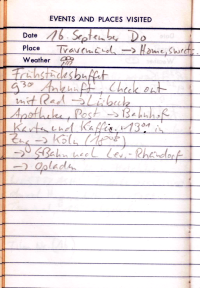 EVENTS AND PLACES VISITED
Date 16 September Do
Place Travemünd → Home, sweet
Weather
Frühstücksbuffet
9³⁰ Ankunft, Check out
mit Rad → Lübeck
Apotheke, Post → Bahnhof
Karten und Kaffee. 13⁰¹ in
Zug → Köln
→ S Bahn nach Lev.-Rheindorf
→ Opladen